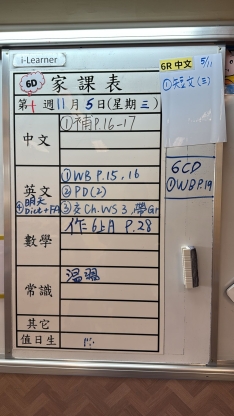 i-Learner
6D 家課表
第十週11月5日(星期三)
中文 ①補P.16-17
英文 ①WB P.15, 16
②PD(2)
③交Ch.WS 3, 帶Gr
④明天
dict+
數學 作6上A P.28
常識 溫習
其它
值日生
6R 中文 5/11
①短文(三)
6CD
①WB P.19